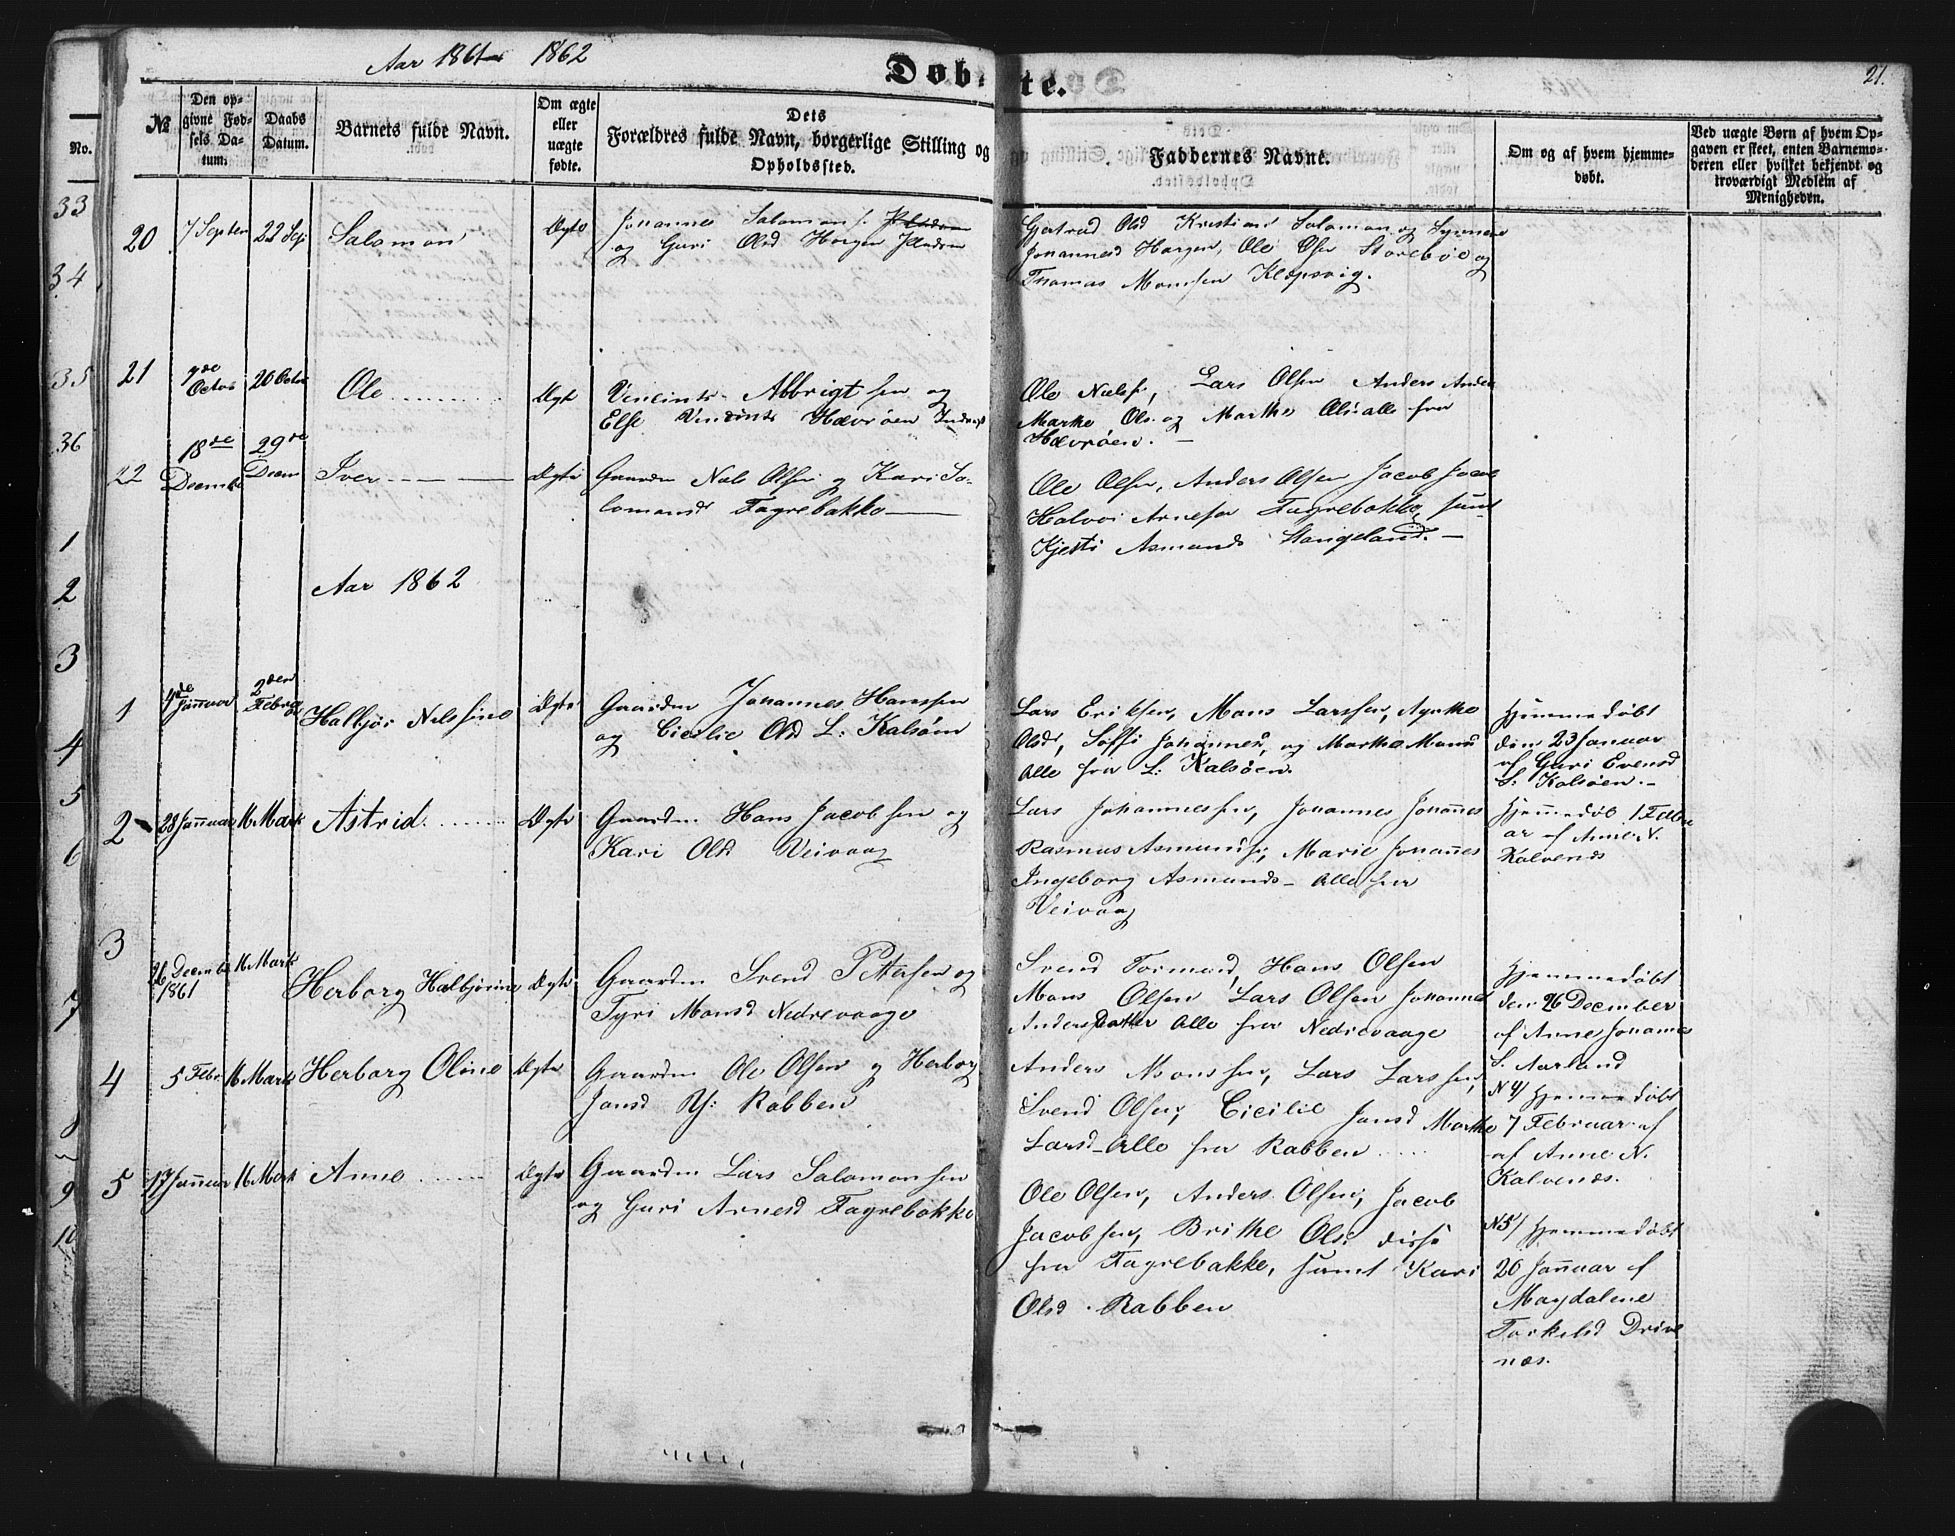 Aar 1861 1862
Døbte.
21.
№
Den opgivne Fødsels Datum.
Daabs Datum.
Barnets fulde Navn.
Om ægte eller uægte fødte.
Dets Forældres fulde Navn, borgerlige Stilling og Opholdssted.
Faddernes Navne.
Om og af hvem hjemmedøbt.
Ved uægte Børn af hvem Opgaven er skeet, enten Barnemoderen eller hvilket bekjendt og troværdigt Medlem af Menigheden.
No.
33
34
35
36
1
2
3
4
5
6
7
8
9
10
20 7 Septen 22 Sep Salomon Ægte Johannes Salomons.
og Guri Olsd Horgen
Gjertrud Olsd Kristian Salomon og
Johannesd Horgen, Ole Olsen Storebøe og
Thomas Monssen Klepsvig.
21 7de Octob 20 Octo Ole Ægte Vincints Abbrigtsen og
Else Vincints Hævrøen
Ole Nielss, Lars Olsen Anders Anders
Marthe Ols. og Marthe Ols: alle fra
Hævrøen.
22 18de Decemb 29de Decm Iver Ægte Gaardm Nels Olsen og Kari Sa-
lomonsd Fagrebakke
Ole Olsen, Anders Olsen Jacob Jacob
Halvor Arnesen Fagrebakke samt
Kjesti Asmunds Stangeland.
Aar 1862
1 4de Januar 2den Februar Halbjør Nelssine Ægte Gaardm Johannes Hanssen
og Cicilie Olsd L: Kalsøen
Lars Eriksen, Mons Larssen, Agathe
Olsdr, Søffi Johannes, og Marthe Mons
Alle fra L: Kalsøen.
Hjemmedøbt
den 23 Januar
af Guri Evensd
L. Kalsøen.
2 28 Januar 16 Mark Astrid. Ægte Gaardm Hans Jacobsen og
Kari Olsd Veivaag
Lars Johannessen, Johannes Johannes
Rasmus Asmunds, Marie Johannes
Ingeborg Asmunds Alle fra
Veivaag
Hjemmedøb 1 Febru
ar af Anne N.
Kalvenes
3 26 Decemb 1861 16 Mark Herborg Halbjørine Ægte Gaardm Svend Pettersen og
Tyri Monsd Nedrevaage
Svend Tormend, Hans Olsen
Mons Olsen Lars Olsen Johannes
Andersdatter Alle fra Nedrevaage
Hjemmedøbt
den 26 December
af Anne Johannes
S. Aarland
4 5 Febr 16 Mark Herborg Oline Ægte Gaardm Ole Olsen og Herborg
Jansd Rabben
Anders Monssen, Lars Larssen,
Svend Olsen, Cicilie Jansd Marthe
Larsd Alle fra Rabben
N4/ Hjemmedøbt
7 Februar af
af Anne N.
Kalvenes.
5 17 Januar 16 Mark Anne Ægte Gaardm Lars Salomonsen
og Guri Arnesd Fagrebakke
Ole Olsen, Anders Olsen, Jacob
Jacobsen, Brithe Olsd disse
fra Fagrebakke, samt Kari
Olsd Rabben
N5/ Hjemmedøbt
20 Januar af
Magdalene
Torkelsd Drive
næs.